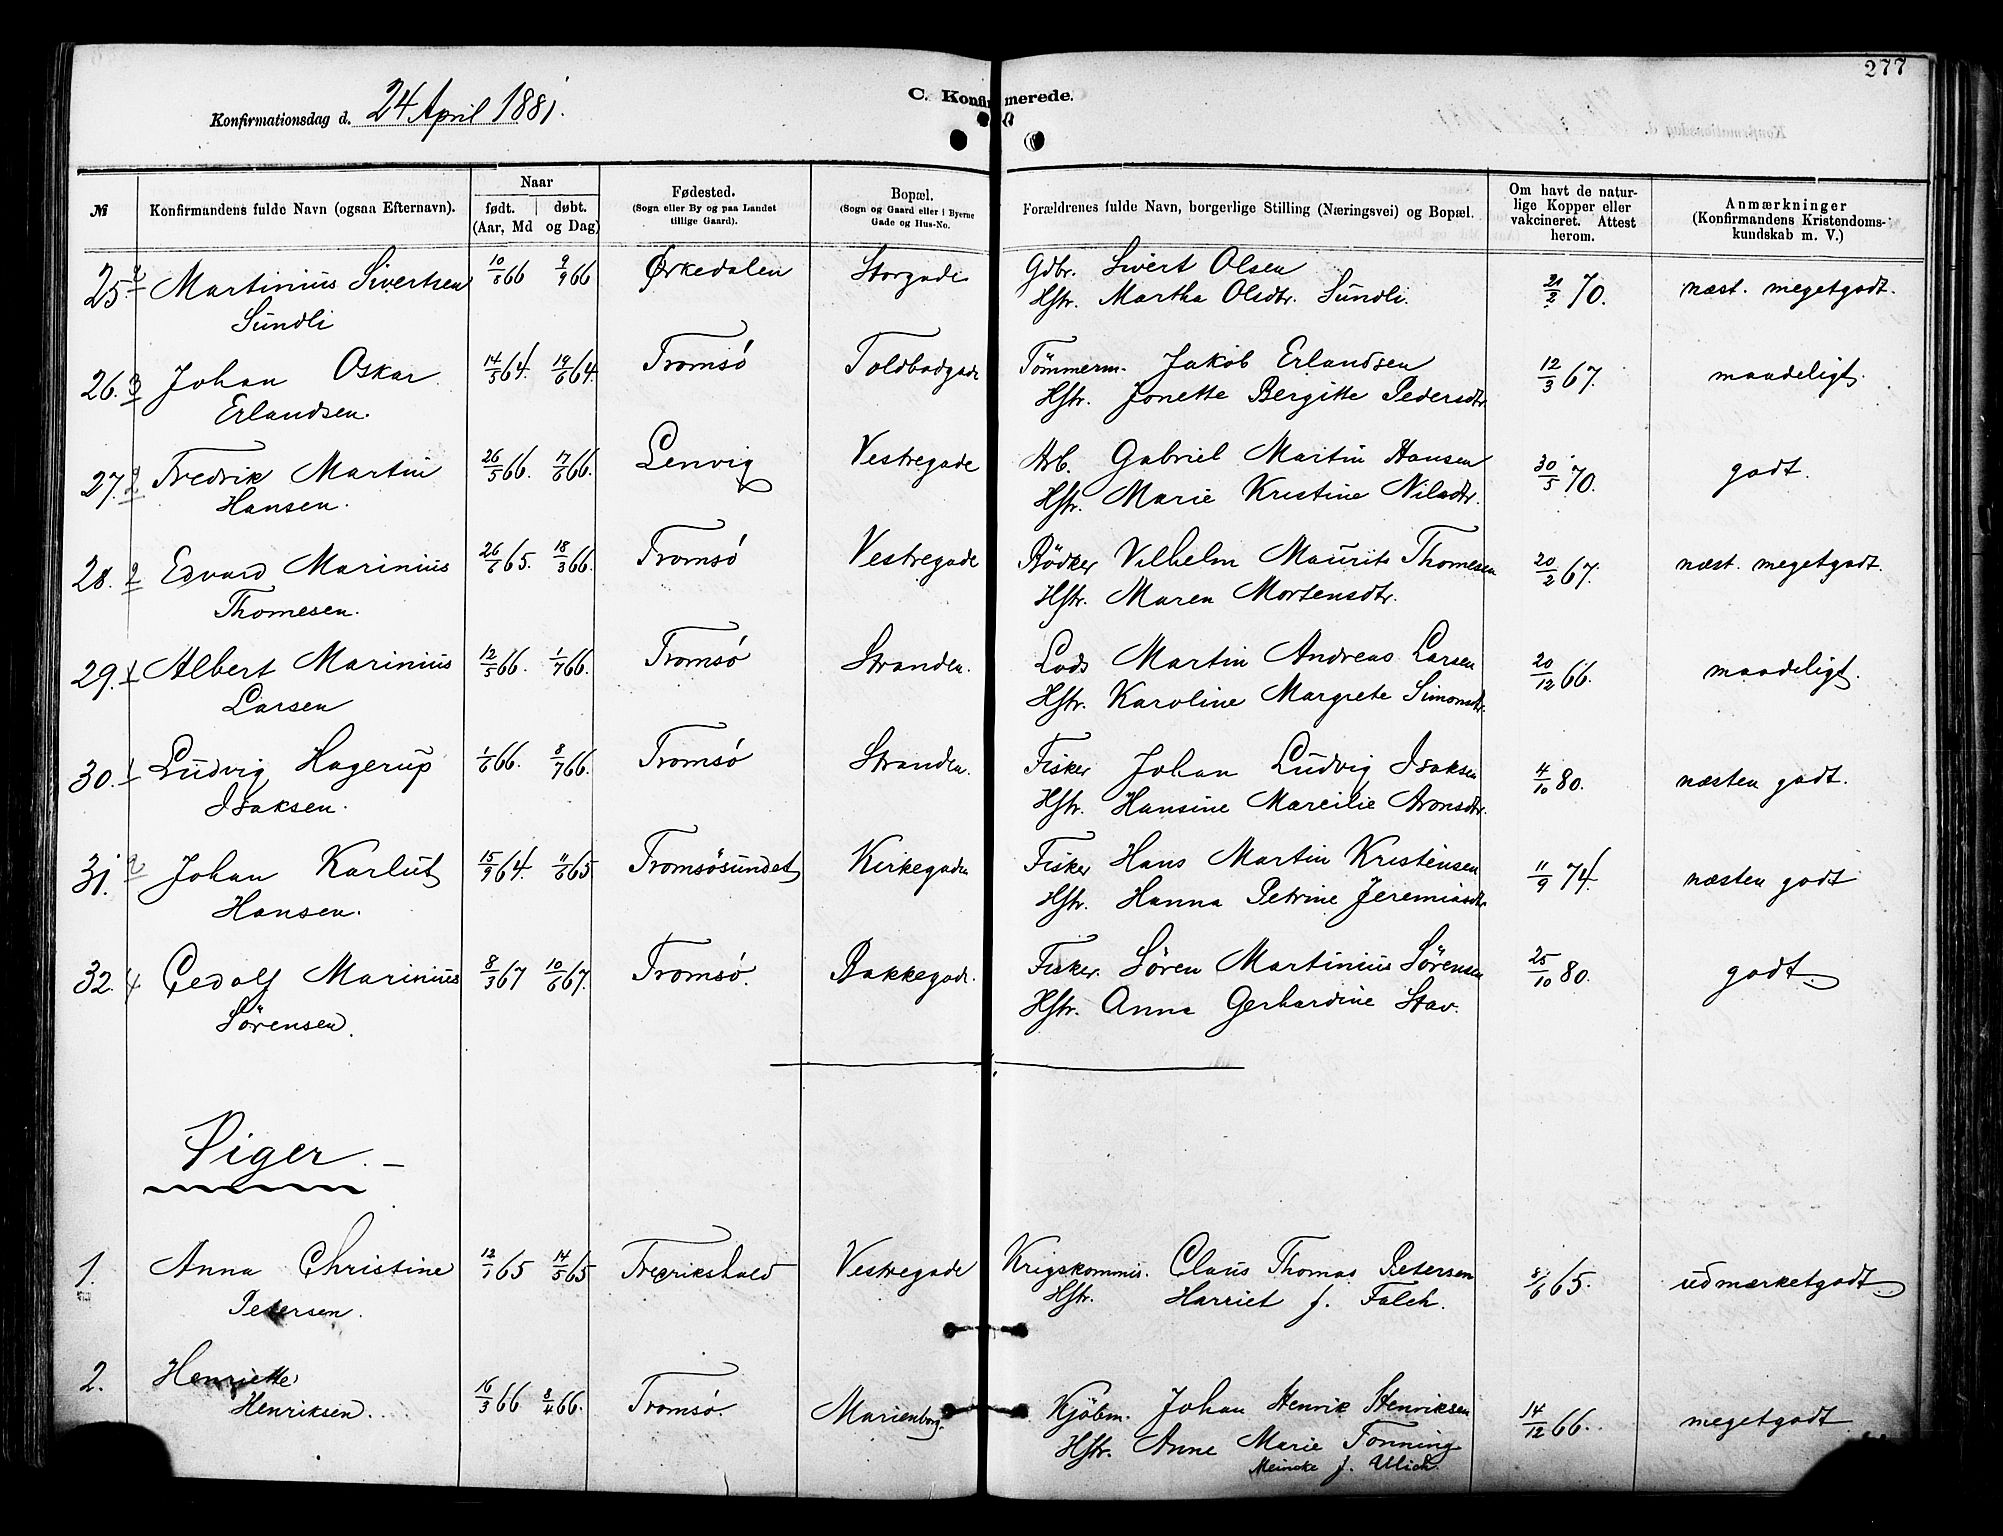 277
C. Konfirmerede.
Konfirmationsdag d. 24 April 1881.
№
Konfirmandens fulde Navn (ogsaa Efternavn).
Naar
født. døbt.
(Aar, Md og Dag)
Fødested.
(Sogn eller By og paa Landet
tillige Gaard).
Bopæl.
(Sogn og Gaard eller i Byerne
Gade og Hus-No.
Forældrenes fulde Navn, borgerlige Stilling (Næringsvei) og Bopæl.
Om havt de natur-
lige Kopper eller
vakcineret. Attest
herom.
Anmærkninger
(Konfirmandens Kristendoms-
kundskab m. V.)
25. Martinius Sivertsen 10/6 66 9/9 66 Ørkedalen Storgade Gdbr. Sivert Olsen 21/2 70. næst. megetgodt.
Sundli Hstr. Martha Olsdtr. Sundli.
26. 3 Johan Oskar 14/5 64. 19/6 64. Tromsø Toldbodgade Tömmerm. Jakob Erlandsen 12/3 67. maadeligt.
Erlandsen. Hstr. Jonette Bergitte Pedersdtr
27. 2 Fredrik Martin 26/5 66. 17/6 66. Lenvig Vestregade Arb. Gabriel Martin Hansen 30/5 70. godt.
Hansen. Hstr. Marie Kristine Nilsdtr.
28. 2 Edvard Marinius 26/6 65. 18/3 66. Tromsø Vestregade Bödker Vilhelm Maurits Thomesen 20/2 67. næst. megetgodt.
Thomesen. Hstr. Maren Mortensdtr.
29. 1 Albert Marinius 12/5 66. 1/7 66. Tromsø Stranden. Lods Martin Andreas Larsen 20/12 66. maadeligt.
Larsen Hstr. Karoline Margrete Simonsdtr.
30. 1 Ludvig Hagerup 1/6 66. 8/7 66. Tromsø Stranden. Fisker Johan Ludvig Isaksen 4/10 80. næsten godt.
Isaksen. Hstr. Hansine Marcilie Aronsdtr.
31. Johan Karlut 15/9 64. 11/6 65 Tromsøsundet Kirkegaden Fisker Hans Martin Kristensen 11/9 74. næsten godt
Hansen. Hstr. Hanna Petrine Jeremiasdtr
32. 4 Gedolf Marinius 8/3 67 10/6 67. Tromsø. Bakkegade. Fisker. Søren Martinius Sörensen 25/10 80. godt.
Sörensen. Hstr. Anna Gerhardine Stav.
Piger. —
1. Anna Christine 12/1 65 14/5 65 Fredrikshald Vestregade Krigskommis. Claus Thomas Petersen 8/6 65. udmærketgodt.
Petersen. Hstr. Harriet f. Falch.
2. Henriette 16/3 66 8/4 66. Tromsø. Marienborg. Kjöbm. Johan Henrik Henriksen 14/12 66. megetgodt
Henriksen. Hstr. Anne Marie Tonning
Meincke f. Ulich.